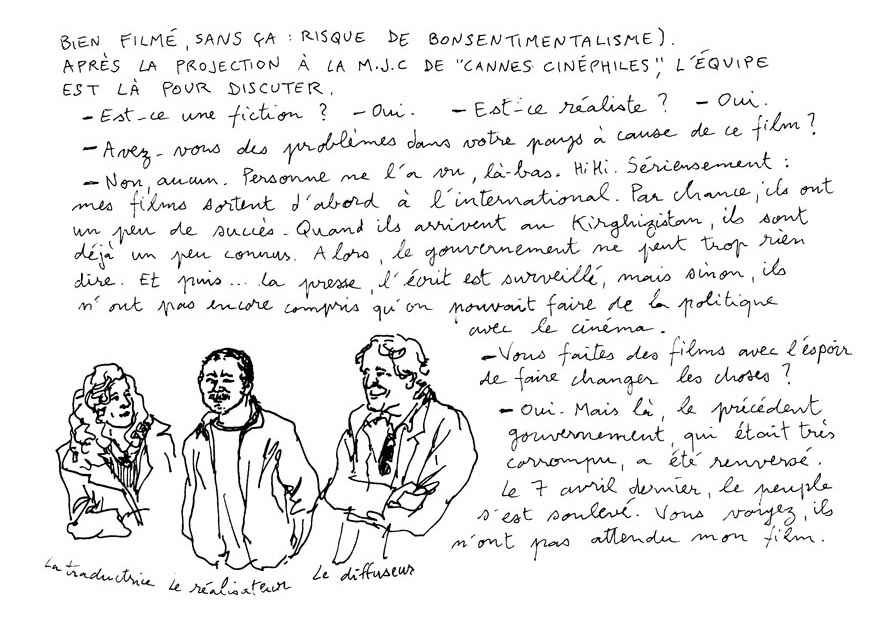 BIEN FILMÉ, SANS ÇA : RISQUE DE BONSENTIMENTALISME).
APRÈS LA PROJECTION À LA M.J.C DE "CANNES CINÉPHILES", L'ÉQUIPE
EST LÀ POUR DISCUTER.
– Est-ce une fiction ? – Oui. – Est-ce réaliste ? – Oui.
– Avez-vous des problèmes dans votre pays à cause de ce film ?
– Non, aucun. Personne ne l'a vu, là-bas. HiHi. Sérieusement :
mes films sortent d'abord à l'international. Par chance, ils ont
un peu de succès. Quand ils arrivent au Kirghizistan, ils sont
déjà un peu connus. Alors, le gouvernement ne peut trop rien
dire. Et puis... la presse, l'écrit est surveillé, mais sinon, ils
n'ont pas encore compris qu'on pouvait faire de la politique
avec le cinéma.
– Vous faites des films avec l'espoir
de faire changer les choses ?
– Oui. Mais là, le précédent
gouvernement, qui était très
corrompu, a été renversé.
Le 7 avril dernier, le peuple
s'est soulevé. Vous voyez, ils
n'ont pas attendu mon film.
La traductrice
Le réalisateur
Le diffuseur